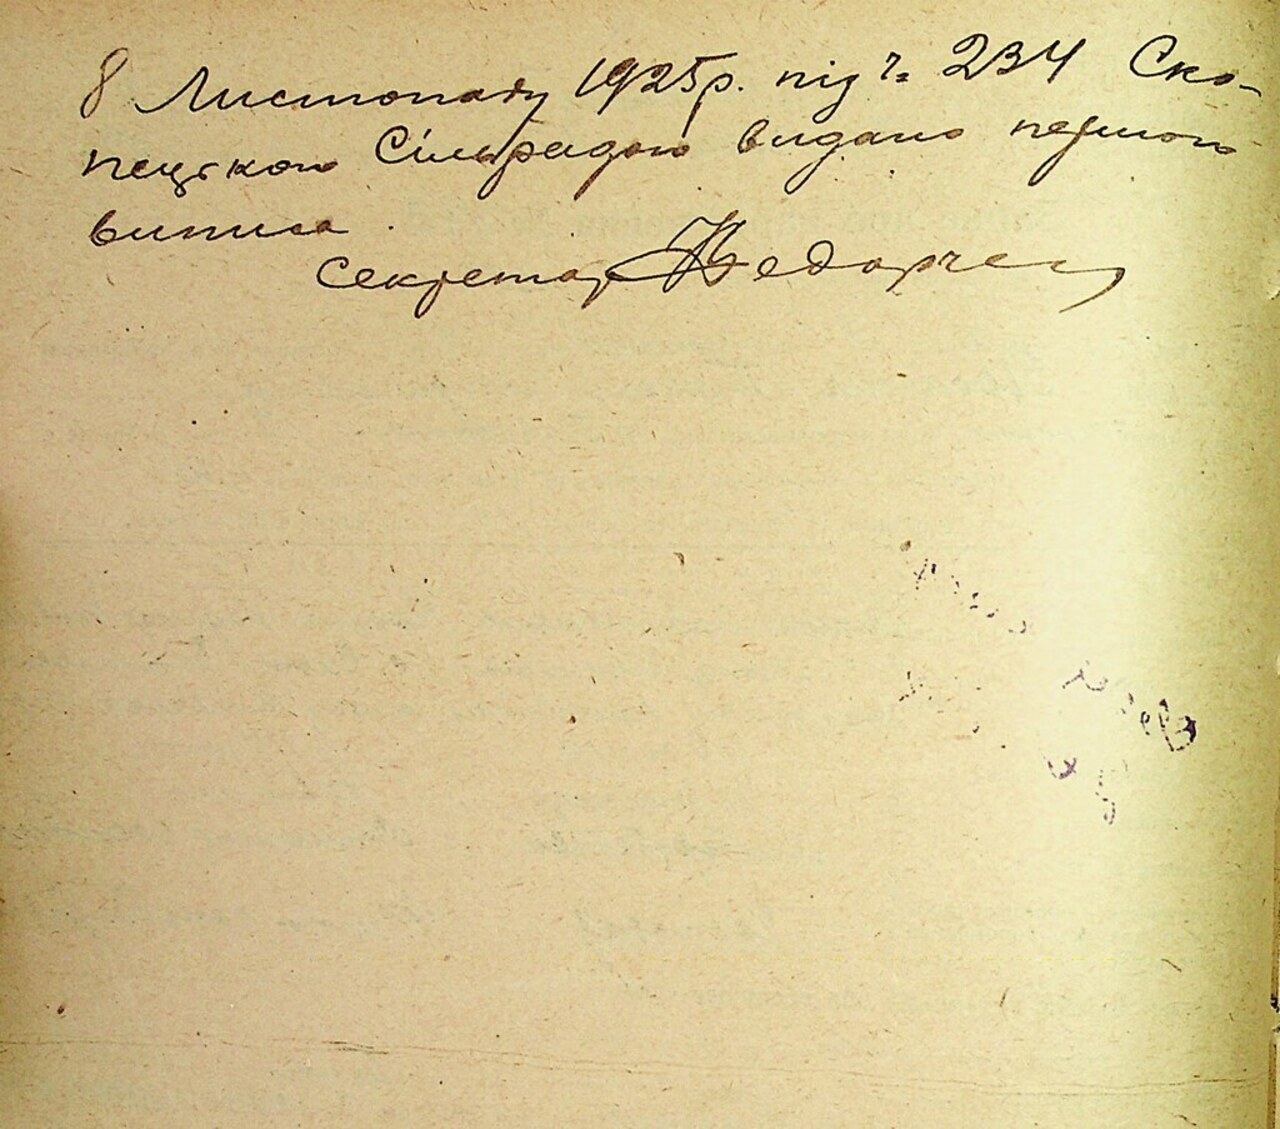 8 Листопаду 1925р. під ч. 234 Ско-
пецькою Сільрадою видано першого
виписа.
Секретар